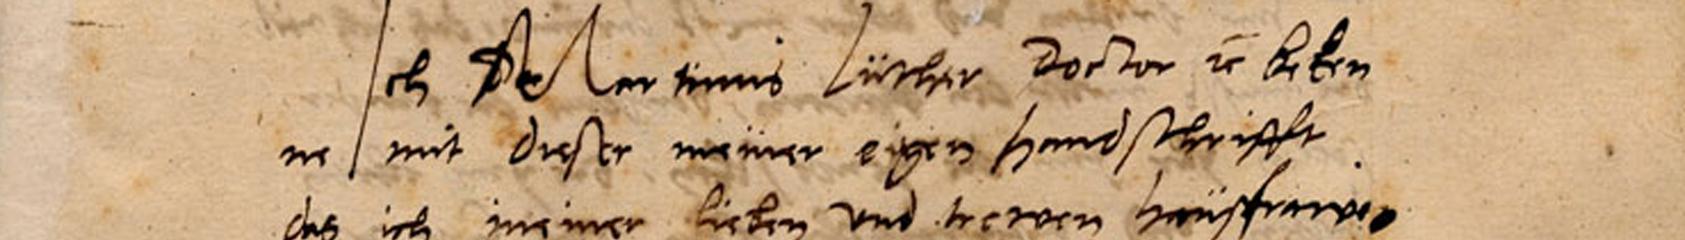 Ich Martinus Luther Doctor ꝛc beken
ne mit dieser meiner eigen handschrifft
das ich meiner lieben vnd trewen hausfrawen